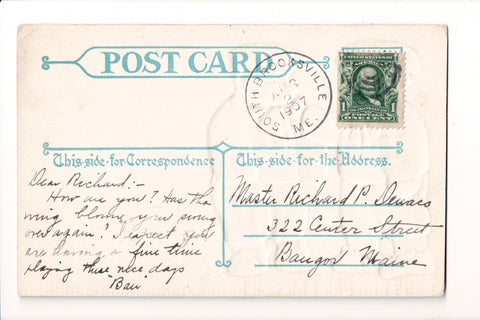 POST CARD
SOUTH BROOKSVILLE
AUG
1907
ME.
1
ONE CENT
This side for Correspondence
This side for the Address.
Dear Richard:-
How are you? Has the
wind blown your
over again? I expect you
are having a fine time
playing these nice days
Master Richard P.
322 Center Street
Bangor Maine